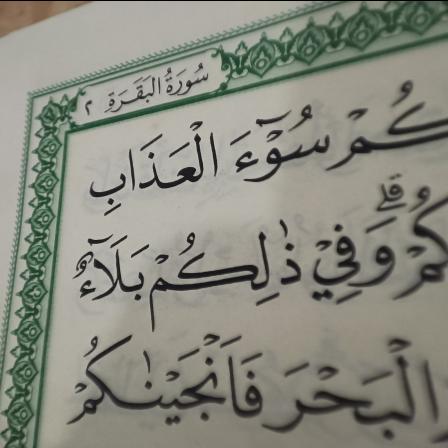 سُورَةُ البَقَرَةِ ٢
كُمْ سُوْٓءَ الْعَذَابِ
كُمْ ۗ وَفِيْ ذٰلِكُمْ بَلَاۤءٌ
الْبَحْرَ فَاَنْجَيْنٰكُمْ